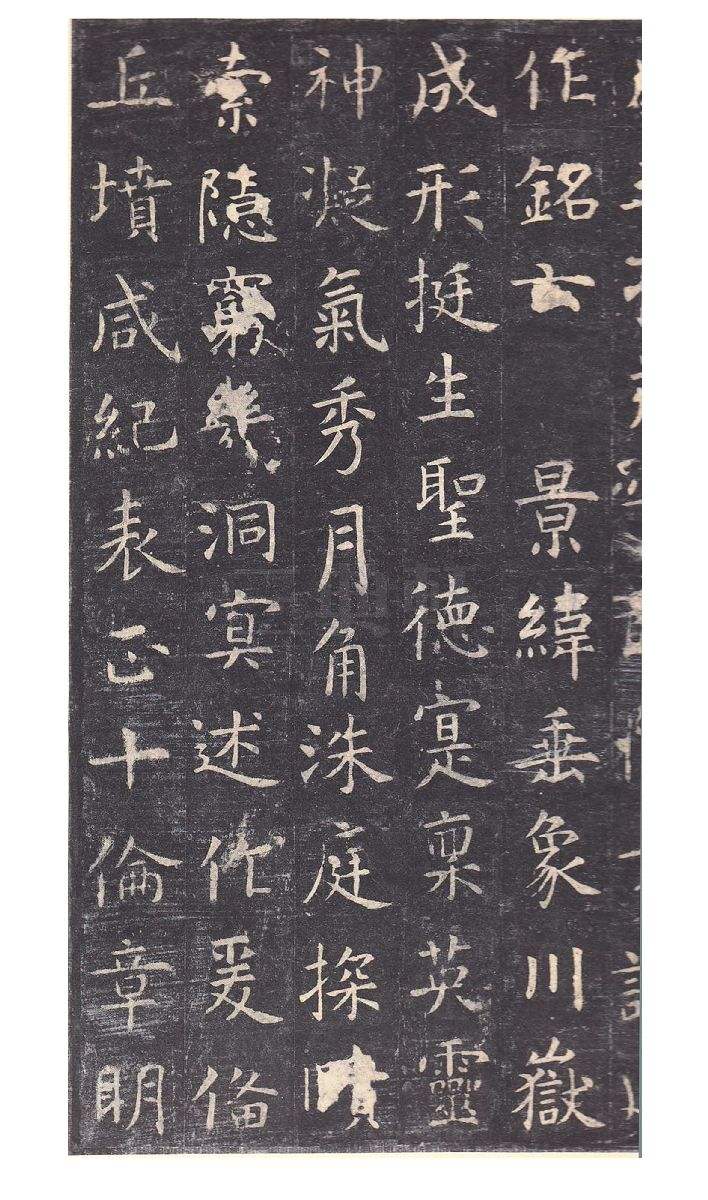 作銘云景緯垂象川嶽
成形挺生聖德寔稟英靈
神凝氣秀月角洙庭探賾
索隱窮幾洞冥述作爰俻
丘墳咸紀表正十倫章明